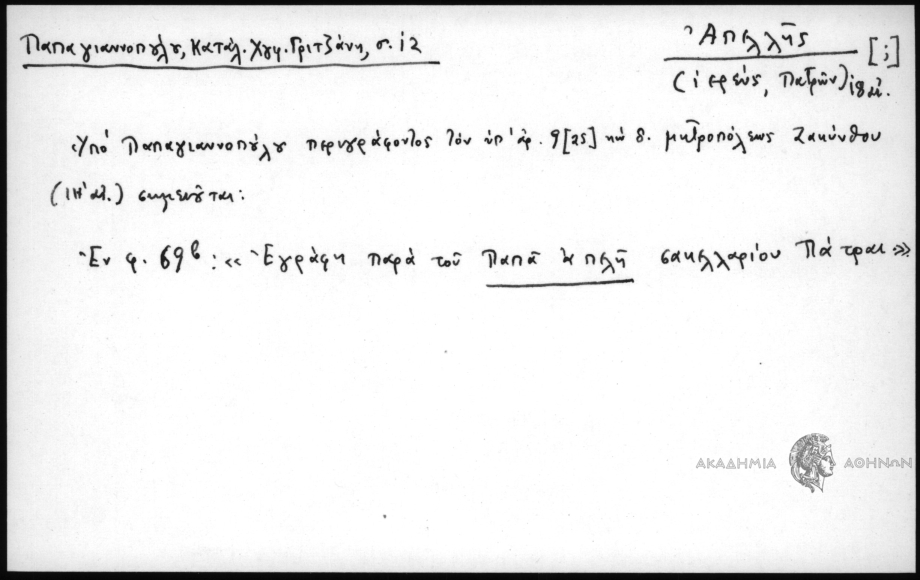 Παπαγιαννοπούλου, Κατάλ. Χγφ. Γριτζάνη, σ. 12
Ἀπελλῆς [;]
(ἱερεύς, Πατρῶν) 18 αἰ.
Ὑπό Παπαγιαννοπούλου περιγράφοντος τόν ὑπ' ἀρ. 9[25] κώδ. μητροπόλεως Ζακύνθου
(ΙΗ' αἰ.) σημειοῦται:
Ἐν φ. 69β: «Ἐγράφη παρά τοῦ Παπᾶ Ἀπελῆ σακελλαρίου Πάτραι»
ΑΚΑΔΗΜΙΑ ΑΘΗΝΩΝ